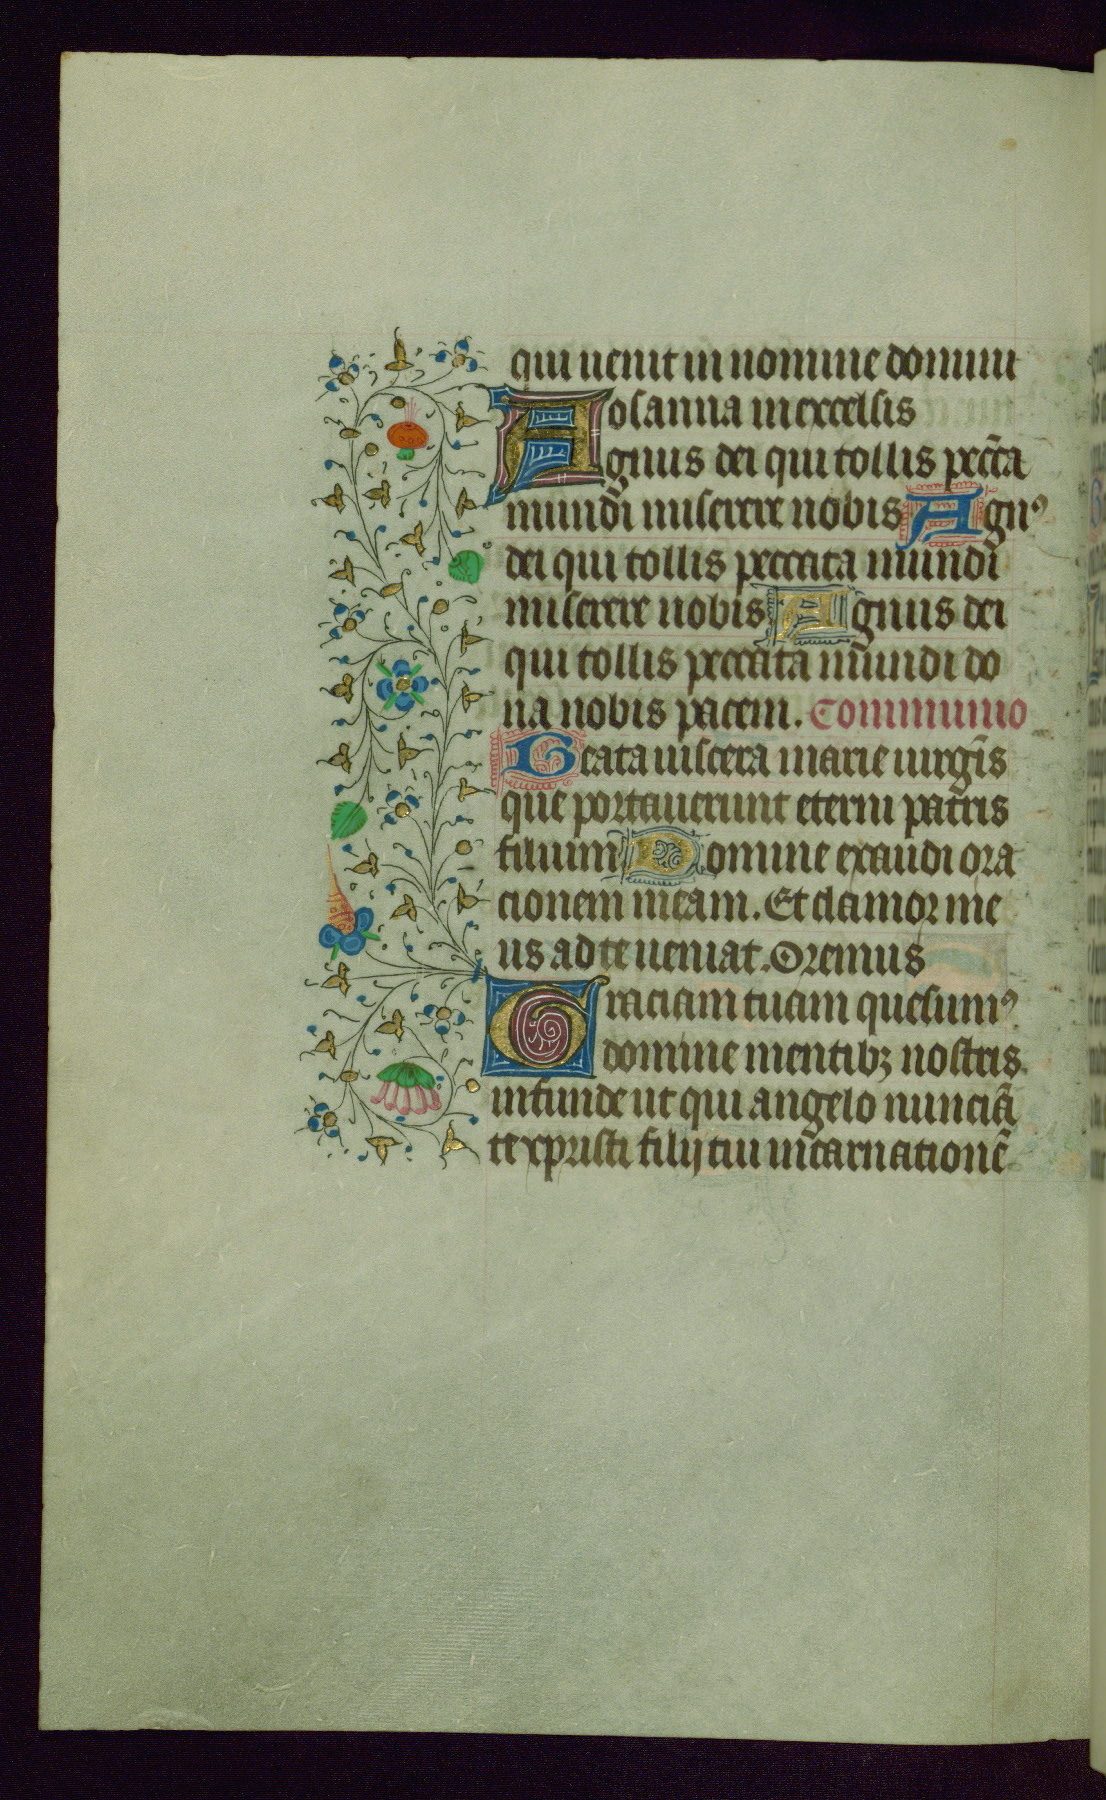 qui uenit in nomine domini
osanna in excelsis
Agnus dei qui tollis pecc̄ta
mundi miserere nobis Agnꝰ
dei qui tollis peccata mundi
miserere nobis Agnus dei
qui tollis peccata mundi do
na nobis pacem. Communio
Beata uiscera marie uirgīs
que portauerunt eterni patris
filium Domine exaudi ora
cionem meam. Et clamor me
us ad te ueniat. Oremus
Graciam tuam quesumꝰ
domine mentibꝫ nostris
infunde ut qui angelo nunciā
te xpristi filij tui incarnationē